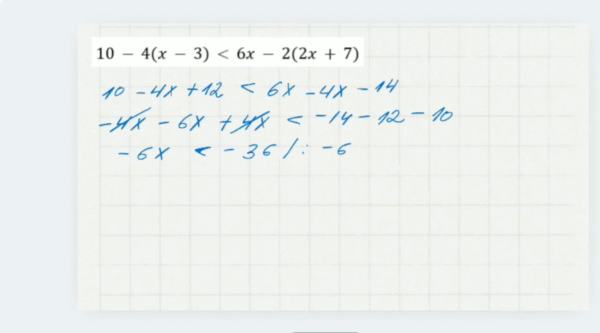 10 − 4(x − 3) < 6x − 2(2x + 7)
10 - 4x + 12 < 6x - 4x - 14
-4x - 6x + 4x < -14 - 12 - 10
-6x < -36 /: -6